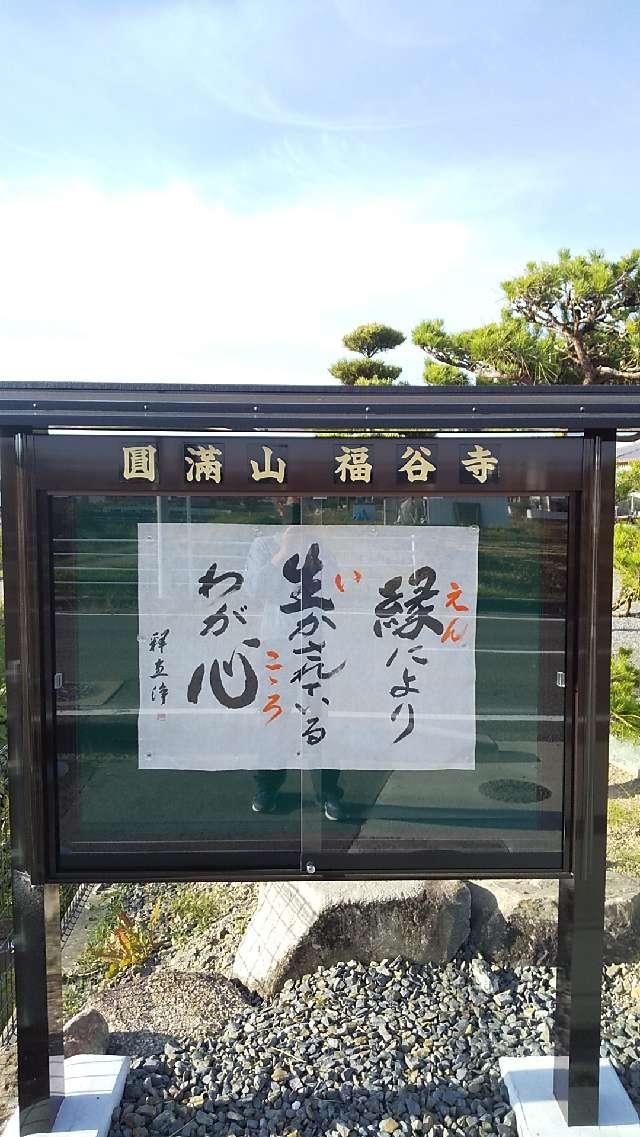 圓満山 福谷寺
縁により
えん
生かされている
い
わが心
こゝろ
祥立浄